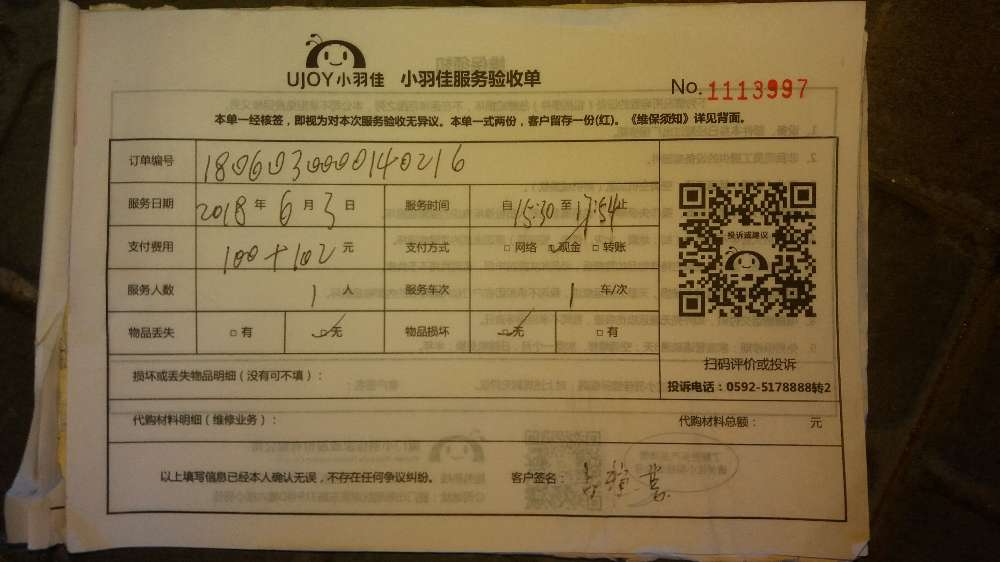 UJOY小羽佳 小羽佳服务验收单
No. 1113997
本单一经核签，即视为对本次服务验收无异议。本单一式两份，客户留存一份(红)。《维保须知》详见背面。
订单编号 1806030000140216
服务日期 2018 年 6 月 3 日 服务时间 自 15:30 至 17:54 止
投诉或建议
支付费用 100+102 元 支付方式 □网络 ☑现金 □转账
服务人数 1 人 服务车次 1 车/次
物品丢失 □有 ☑无 物品损坏 ☑无 □有
扫码评价或投诉
损坏或丢失物品明细（没有可不填）：
投诉电话：0592-5178888转2
代购材料明细（维修业务）： 代购材料总额： 元
以上填写信息已经本人确认无误，不存在任何争议纠纷。 客户签名：